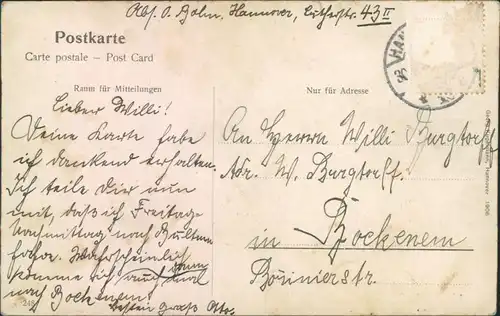 Abs. O. Bolm, Hannover, Lutherstr. 43 II
Postkarte
Carte postale – Post Card
Raum für Mitteilungen
Nur für Adresse
Lieber Willi!
Deine Karte habe
ich dankend erhalten.
Ich teile Dir nun
mit, daß ich Freitag-
Nachmittag nach Bültum
fahre. Wahrscheinlich
komme ich dann auch mal
nach Bockenem.
Besten Gruß Otto.
An Herrn Willi Burgtorf
Adr. W. Burgtorff.
in Bockenem
Bönnierstr.
HAN
Hannover 1906